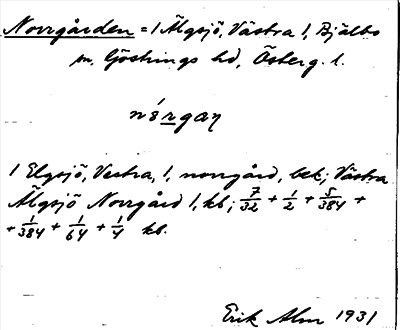 Norrgården = 1 Älgsjö, Västra 1, Bjälbo
sn, Göstrings hd, Österg. l.
nórgaɳ
1 Elgsjö, Vestra, 1, norrgård, bek; Västra
Älgsjö Norrgård 1, kb; 7/32 + 1/2 + 5/384 +
+ 1/384 + 1/64 + 1/4 kb.
Erik Alm 1931